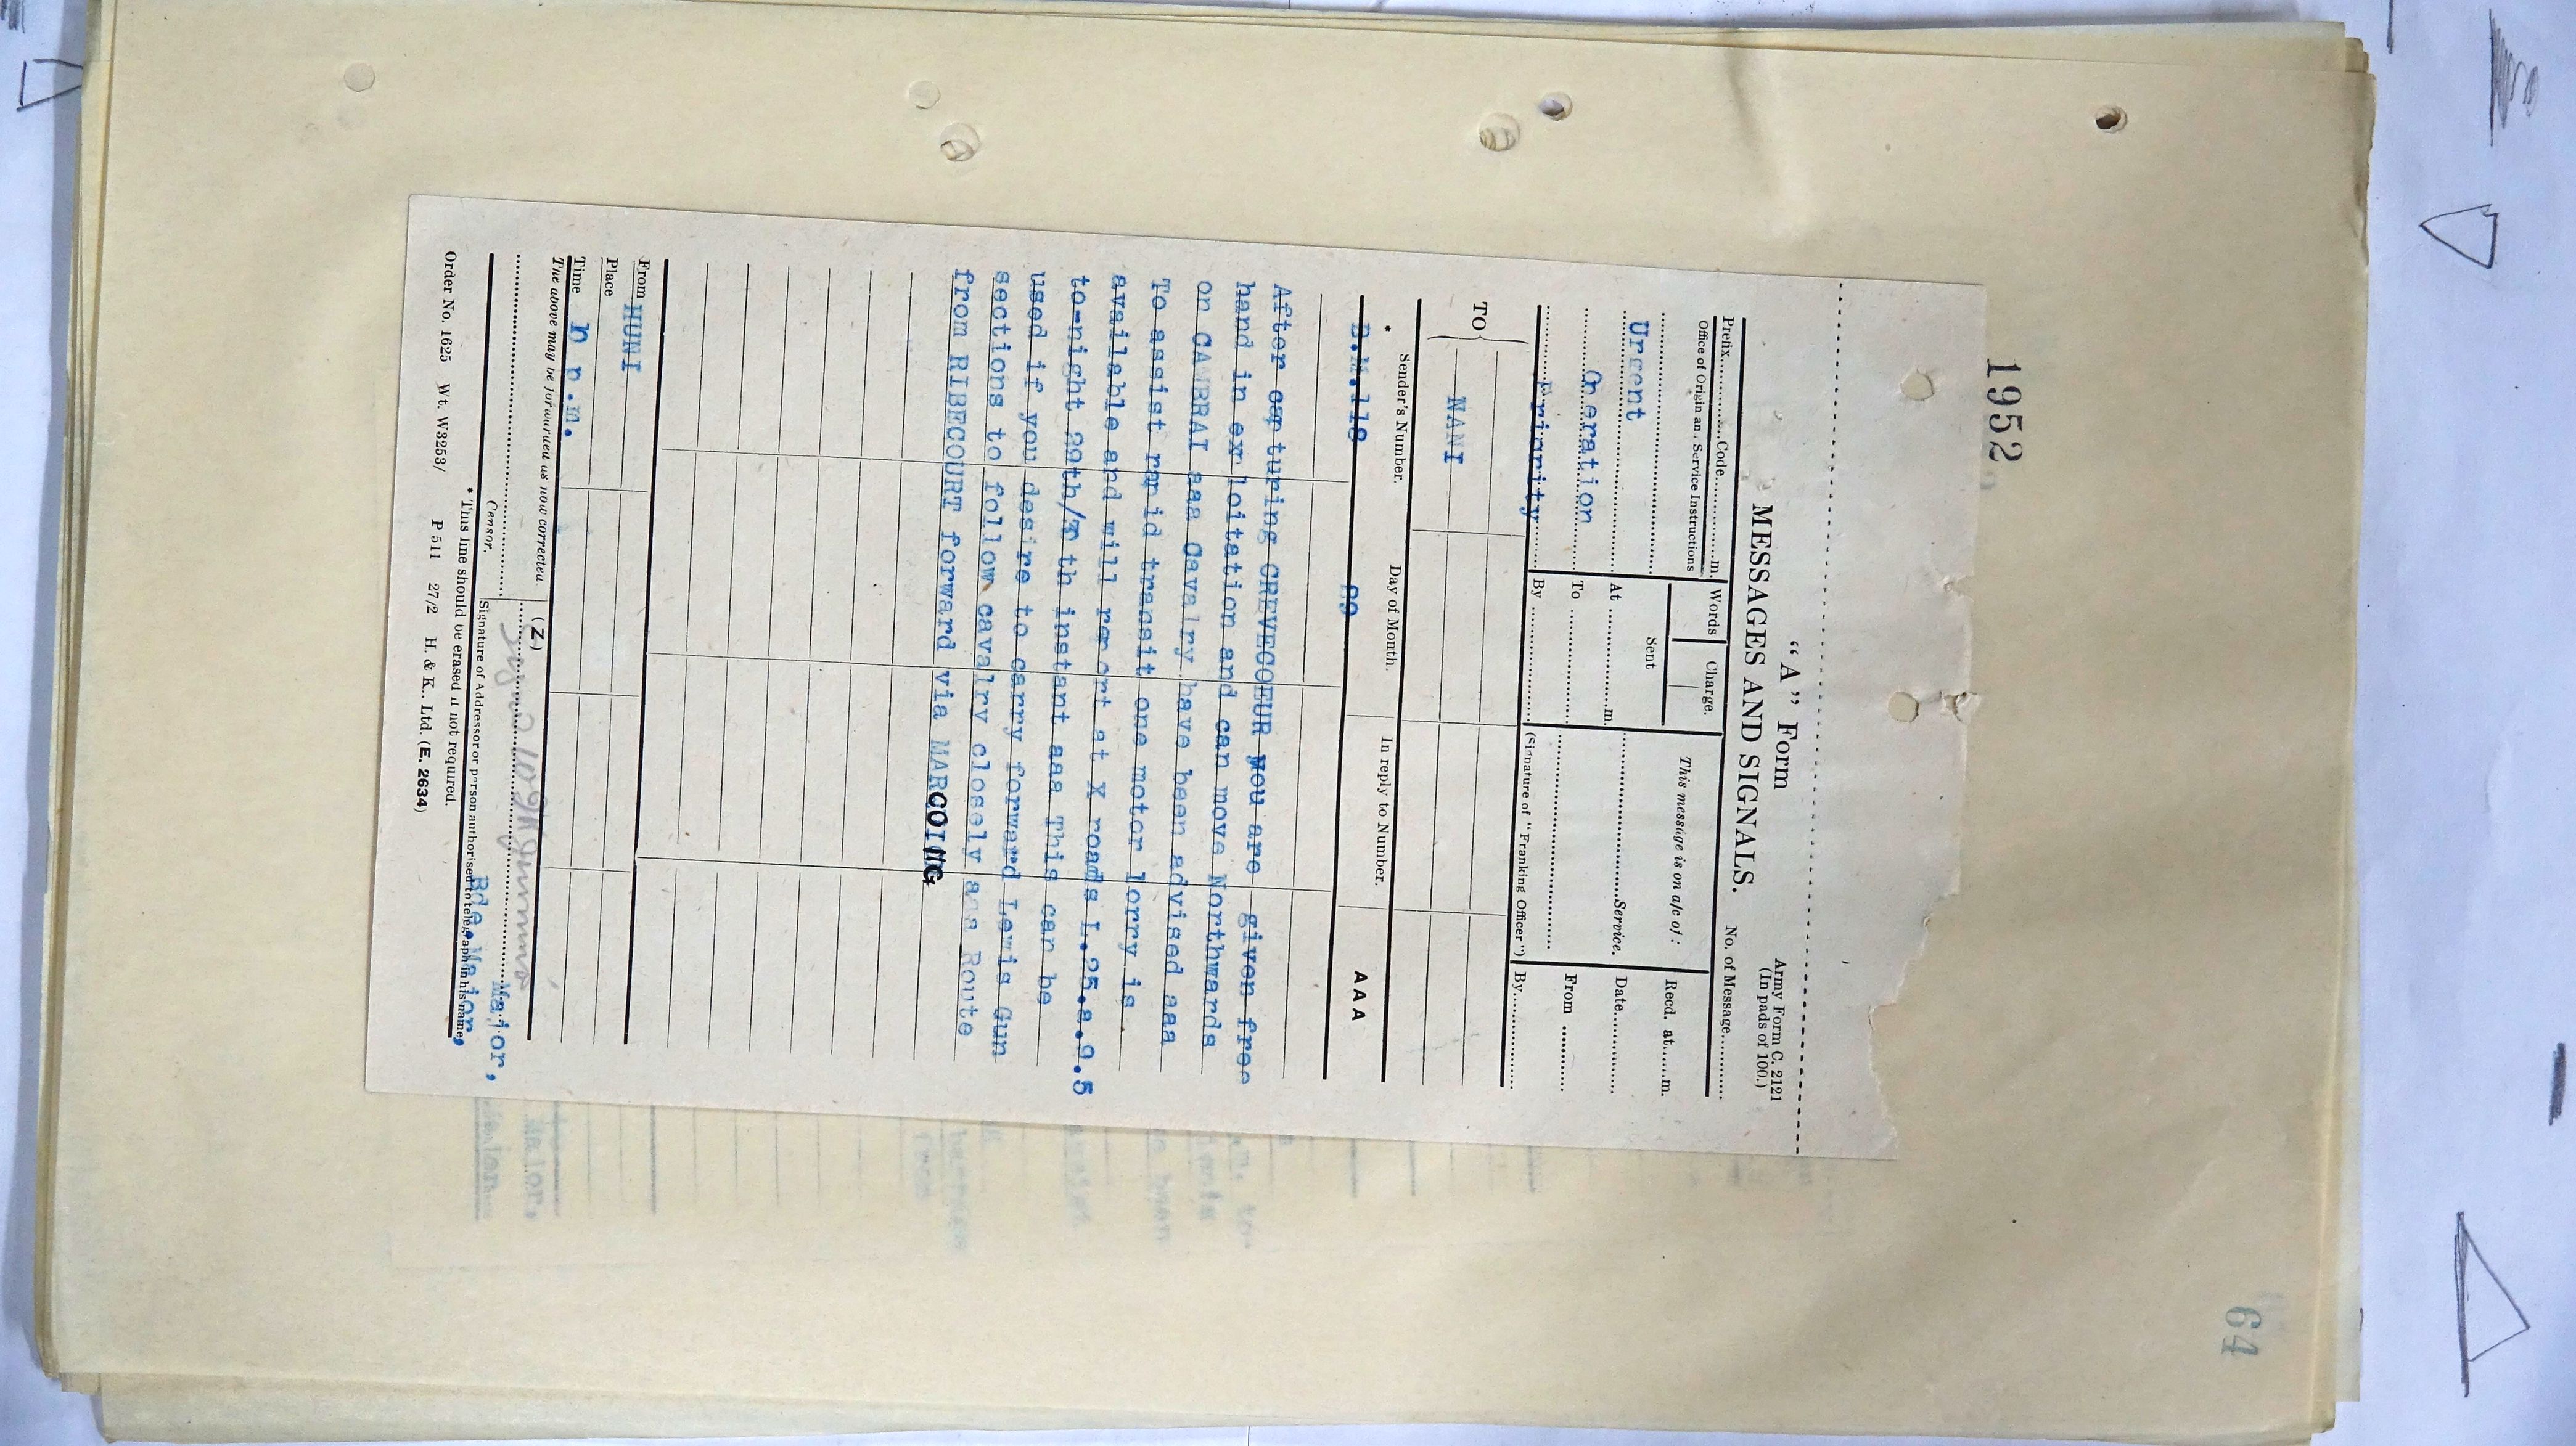 1952
"A" Form
Army Form C. 2121
(In pads of 100.)
MESSAGES AND SIGNALS.
No. of Message
Prefix Code m.
Office of Origin and Service Instructions
Words Charge.
This message is on a/c of:
Recd. at m.
Urgent
Operation
Priority
Sent
At m.
To
By
Service.
(Signature of "Franking Officer")
Date
From
By
TO
NANI
* Sender's Number. Day of Month. In reply to Number. AAA
B.M.118 29
After capturing CREVECOEUR you are given free
hand in exploitation and can move Northwards
on CAMBRAI aaa Cavalry have been advised aaa
To assist rapid transit one motor lorry is
available and will report at X roads L.25.a.9.5
to-night th instant aaa This can be
used if you desire to carry forward Lewis Gun
sections to follow cavalry closely aaa Route
from RIBECOURT forward via MARCOING
From HUNI
Place
Time p.m.
The above may be forwarded as now corrected (Z)
Major,
Censor. Signature of Addressor or person authorised to telegraph in his name,
Bde. Major,
* This line should be erased if not required.
Order No. 1625 Wt. W3253/ P 511 27/2 H. & K., Ltd. (E. 2634)
64